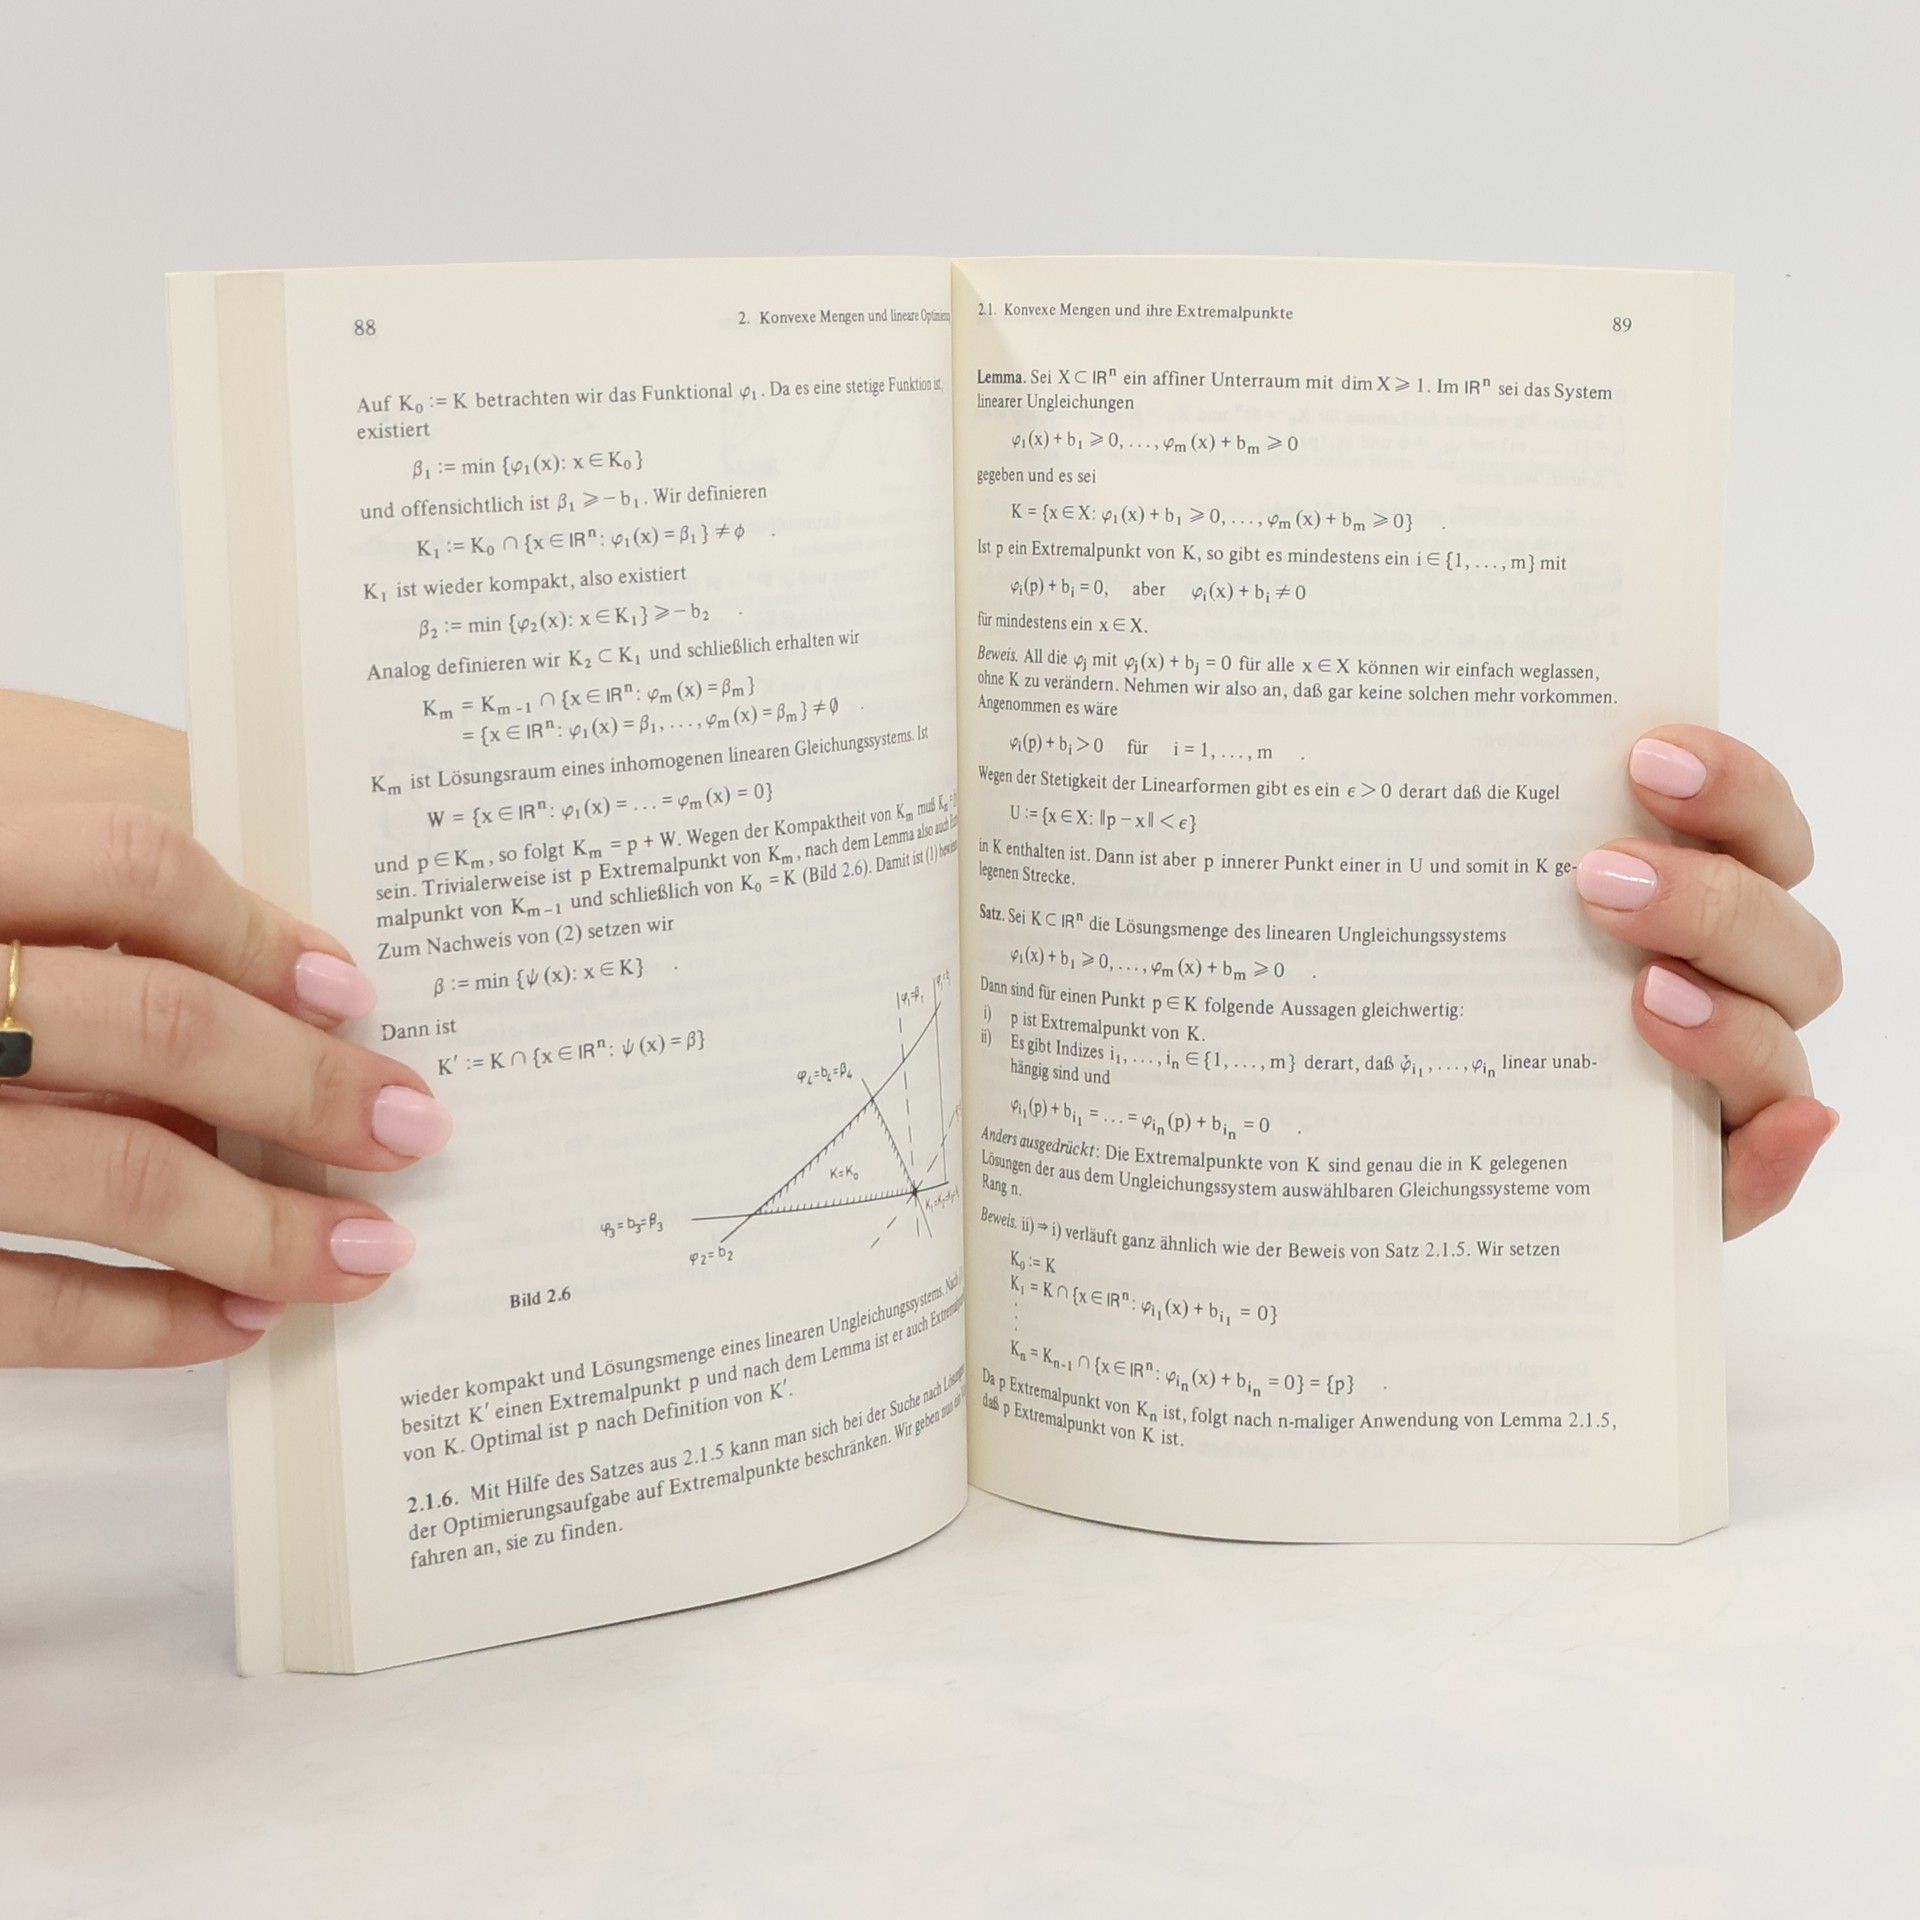 88
2. Konvexe Mengen und lineare
Auf K₀ := K betrachten wir das Funktional φ₁. Da es eine stetige Funktion ist,
existiert
β₁ := min {φ₁(x): x ∈ K₀}
und offensichtlich ist β₁ ⩾ −b₁. Wir definieren
K₁ := K₀ ∩ {x ∈ ℝⁿ: φ₁(x) = β₁} ≠ ϕ .
K₁ ist wieder kompakt, also existiert
β₂ := min {φ₂(x): x ∈ K₁} ⩾ −b₂ .
Analog definieren wir K₂ ⊂ K₁ und schließlich erhalten wir
Kₘ = Kₘ₋₁ ∩ {x ∈ ℝⁿ: φₘ(x) = βₘ}
= {x ∈ ℝⁿ: φ₁(x) = β₁, ..., φₘ(x) = βₘ} ≠ ∅ .
Kₘ ist Lösungsraum eines inhomogenen linearen Gleichungssystems. Ist
W = {x ∈ ℝⁿ: φ₁(x) = ... = φₘ(x) = 0}
und p ∈ Kₘ, so folgt Kₘ = p + W. Wegen der Kompaktheit von Kₘ muß
sein. Trivialerweise ist p Extremalpunkt von Kₘ, nach dem Lemma also auch
malpunkt von Kₘ₋₁ und schließlich von K₀ = K (Bild 2.6). Damit ist (1)
Zum Nachweis von (2) setzen wir
β := min {ψ(x): x ∈ K} .
Dann ist
K′ := K ∩ {x ∈ ℝⁿ: ψ(x) = β}
φ₁=β₁
φ₄=b₄=β₄
K=K₀
φ₃=b₃=β₃
φ₂=b₂
Bild 2.6
wieder kompakt und Lösungsmenge eines linearen Ungleichungssystems. Nach
besitzt K′ einen Extremalpunkt p und nach dem Lemma ist er auch
von K. Optimal ist p nach Definition von K′.
2.1.6. Mit Hilfe des Satzes aus 2.1.5 kann man sich bei der Suche nach
der Optimierungsaufgabe auf Extremalpunkte beschränken. Wir geben
fahren an, sie zu finden.
2.1. Konvexe Mengen und ihre Extremalpunkte
89
Lemma. Sei X ⊂ ℝⁿ ein affiner Unterraum mit dim X ⩾ 1. Im ℝⁿ sei das System
linearer Ungleichungen
φ₁(x) + b₁ ⩾ 0, ..., φₘ(x) + bₘ ⩾ 0
gegeben und es sei
K = {x ∈ X: φ₁(x) + b₁ ⩾ 0, ..., φₘ(x) + bₘ ⩾ 0} .
Ist p ein Extremalpunkt von K, so gibt es mindestens ein i ∈ {1, ..., m} mit
φᵢ(p) + bᵢ = 0, aber φᵢ(x) + bᵢ ≠ 0
für mindestens ein x ∈ X.
Beweis. All die φⱼ mit φⱼ(x) + bⱼ = 0 für alle x ∈ X können wir einfach weglassen,
ohne K zu verändern. Nehmen wir also an, daß gar keine solchen mehr vorkommen.
Angenommen es wäre
φᵢ(p) + bᵢ > 0 für i = 1, ..., m .
Wegen der Stetigkeit der Linearformen gibt es ein ϵ > 0 derart daß die Kugel
U := {x ∈ X: ‖p − x‖ < ϵ}
in K enthalten ist. Dann ist aber p innerer Punkt einer in U und somit in K ge-
legenen Strecke.
Satz. Sei K ⊂ ℝⁿ die Lösungsmenge des linearen Ungleichungssystems
φ₁(x) + b₁ ⩾ 0, ..., φₘ(x) + bₘ ⩾ 0 .
Dann sind für einen Punkt p ∈ K folgende Aussagen gleichwertig:
i) p ist Extremalpunkt von K.
ii) Es gibt Indizes i₁, ..., iₙ ∈ {1, ..., m} derart, daß φ_{i₁}, ..., φ_{iₙ} linear unab-
hängig sind und
φ_{i₁}(p) + b_{i₁} = ... = φ_{iₙ}(p) + b_{iₙ} = 0 .
Anders ausgedrückt: Die Extremalpunkte von K sind genau die in K gelegenen
Lösungen der aus dem Ungleichungssystem auswählbaren Gleichungssysteme vom
Rang n.
Beweis. ii) ⇒ i) verläuft ganz ähnlich wie der Beweis von Satz 2.1.5. Wir setzen
K₀ := K
K₁ = K ∩ {x ∈ ℝⁿ: φ_{i₁}(x) + b_{i₁} = 0}
⋮
Kₙ = Kₙ₋₁ ∩ {x ∈ ℝⁿ: φ_{iₙ}(x) + b_{iₙ} = 0} = {p} .
Da p Extremalpunkt von Kₙ ist, folgt nach n-maliger Anwendung von Lemma 2.1.5,
daß p Extremalpunkt von K ist.